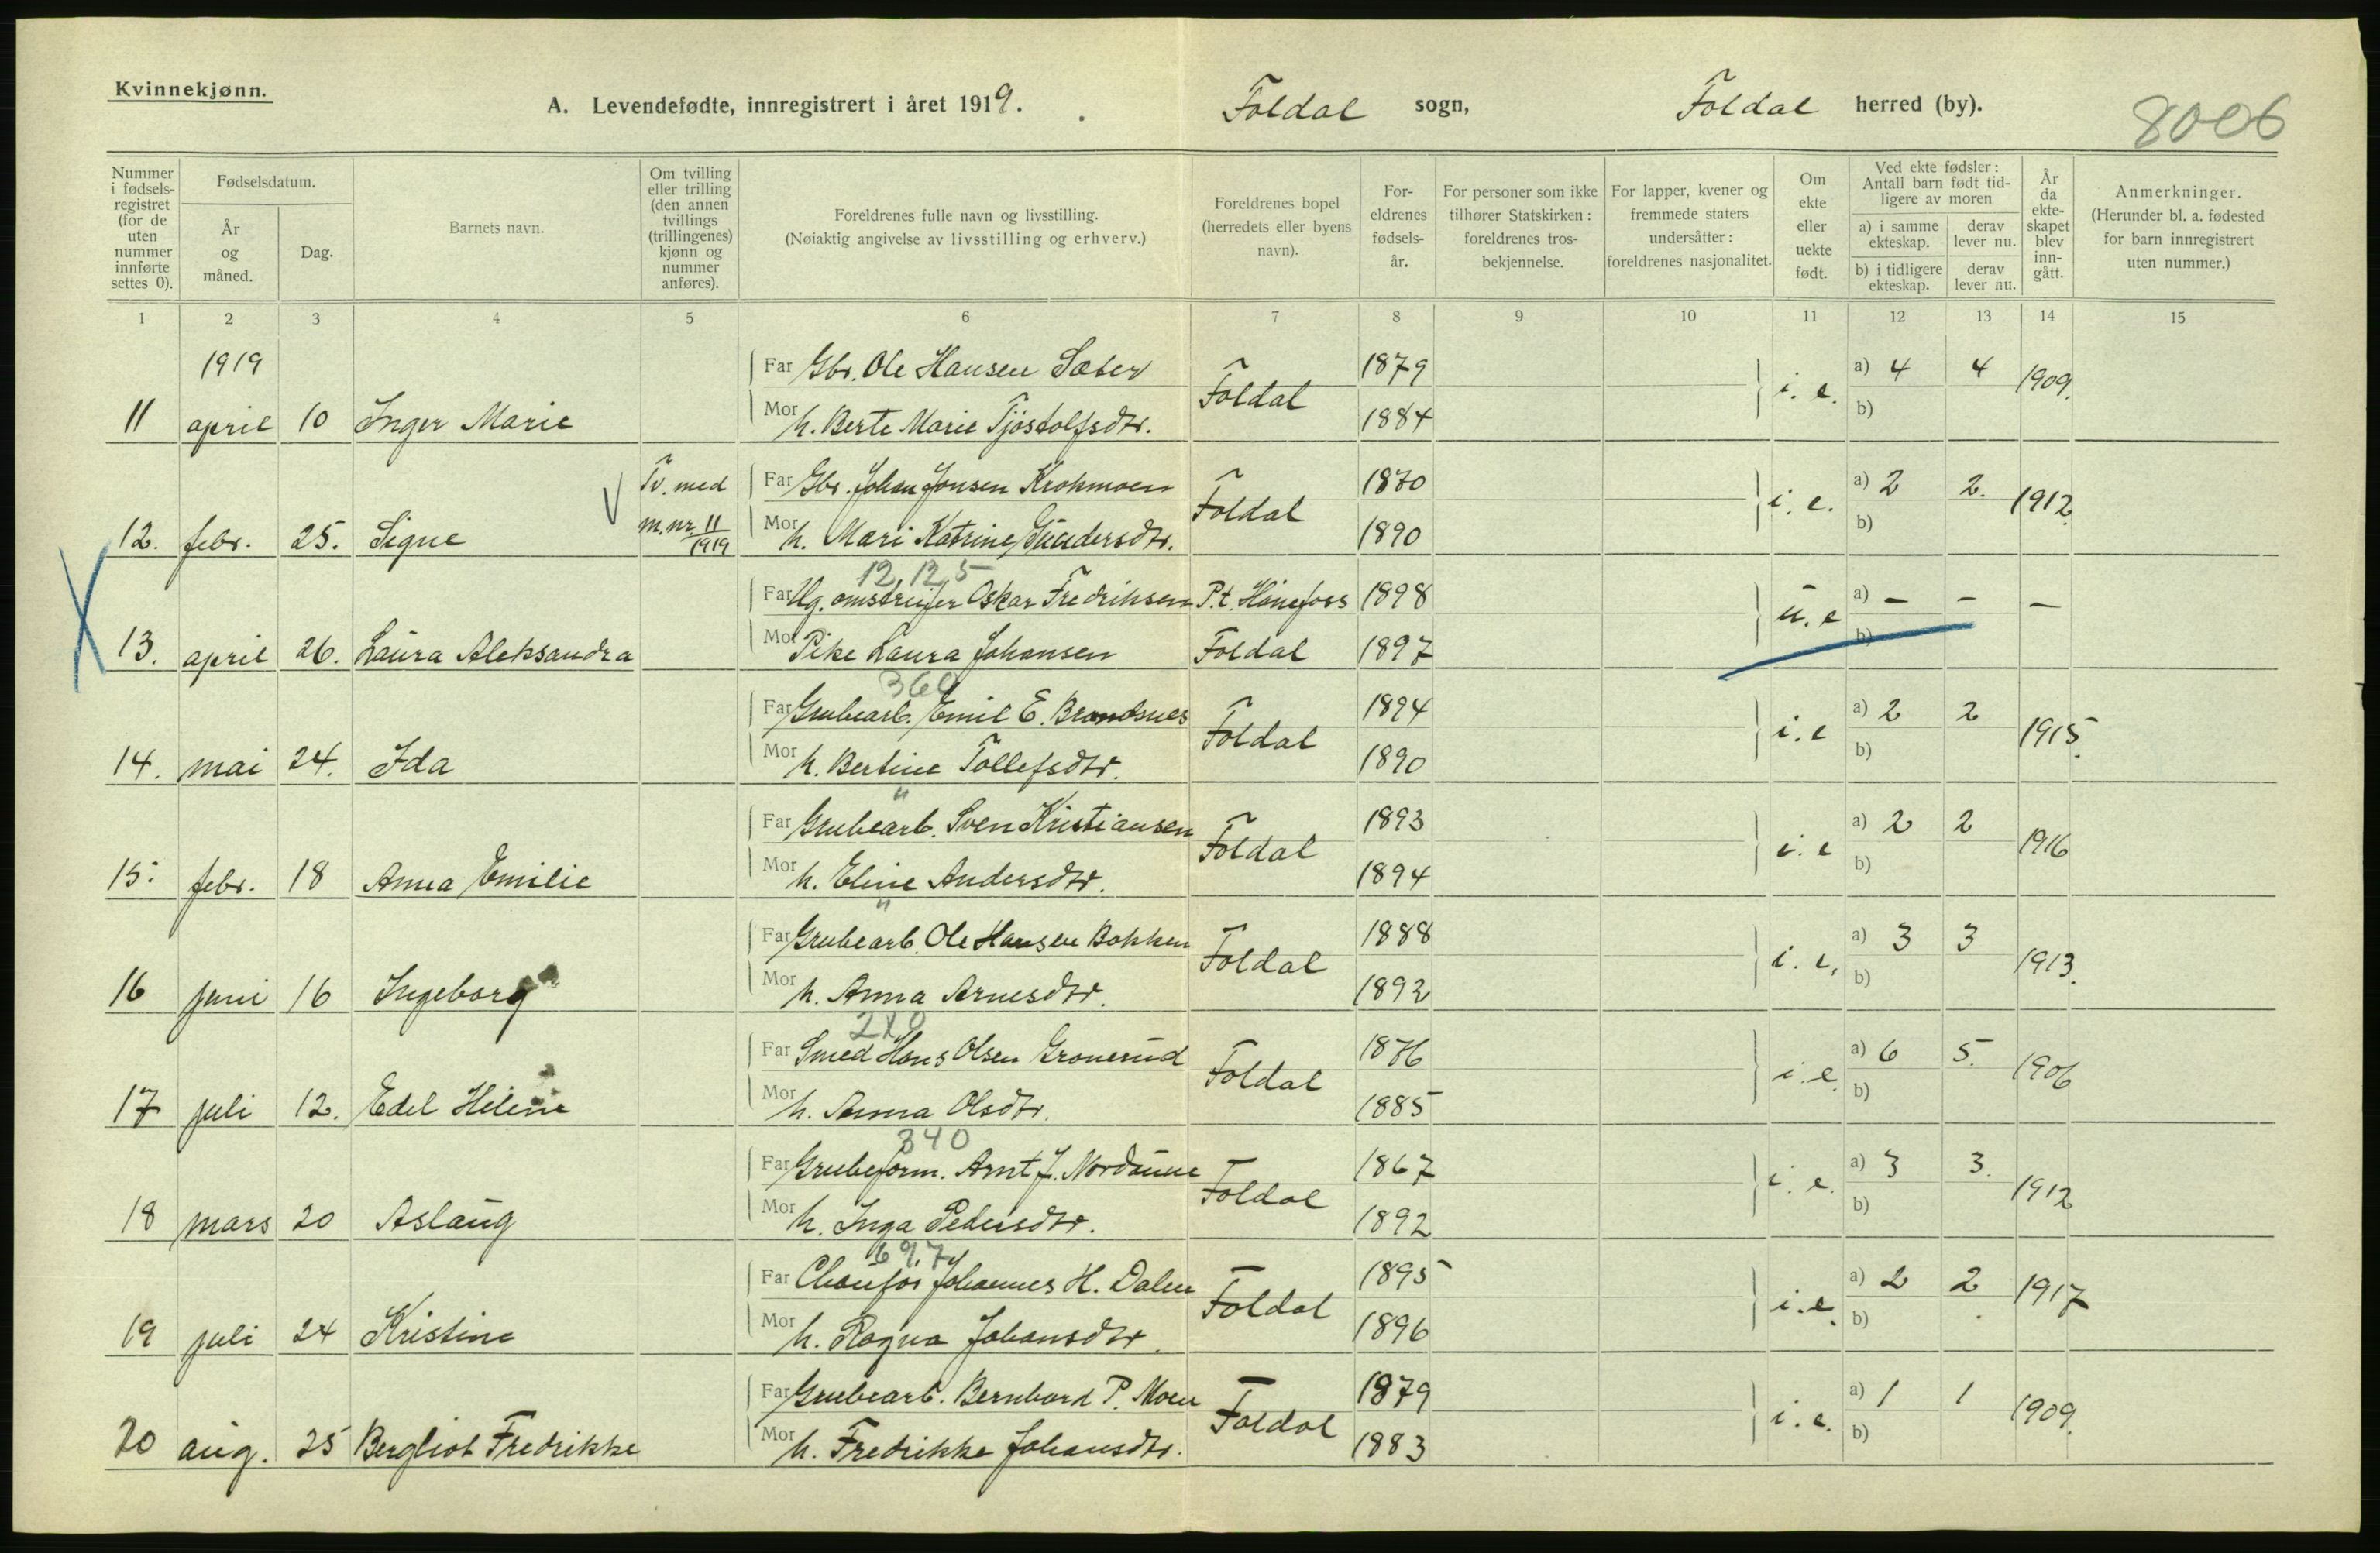 Kvinnekjønn.
A. Levendefødte, innregistrert i året 1919.
Foldal sogn, Foldal herred (by).
8006
Nummer i fødsels-registret (for de uten nummer innførte settes 0).
Fødselsdatum.
År og måned.
Dag.
Barnets navn.
Om tvilling eller trilling (den annen tvillings (trillingenes) kjønn og nummer anføres).
Foreldrenes fulle navn og livsstilling.
(Nøiaktig angivelse av livsstilling og erhverv.)
Foreldrenes bopel (herredets eller byens navn).
For-eldrenes fødsels-år.
For personer som ikke tilhører Statskirken: foreldrenes tros-bekjennelse.
For lapper, kvener og fremmede staters undersåtter: foreldrenes nasjonalitet.
Om ekte eller uekte født.
Ved ekte fødsler: Antall barn født tid-ligere av moren
a) i samme ekteskap.
derav lever nu.
b) i tidligere ekteskap.
derav lever nu.
År da ekte-skapet blev inn-gått.
Anmerkninger.
(Herunder bl. a. fødested for barn innregistrert uten nummer.)
1 2 3 4 5 6 7 8 9 10 11 12 13 14 15
1919 Far Gbr. Ole Hansen Sæter Foldal 1879 i. e. a) 4 4 1909.
11 april 10 Inger Marie Mor h. Berte Marie Tjøstolfsdtr. 1884 b)
Tv. med Far Gbr. Johan Jonsen Krokmoen Foldal 1870 i. e. a) 2 2. 1912.
12. febr. 25. Signe m. nr 11/1919 Mor h. Mari Katrine Gundersdtr. 1890 b)
12, 12, 5
Far Ug. omstreifer Oskar Fredriksen P.t. Hønefoss 1898 u. e a) – – –
13. april 26. Laura Aleksandra Mor Pike Laura Johansen Foldal 1897 b)
360
Far Grubearb. Emil E. Brandsnes Foldal 1894 i. e a) 2 2 1915.
14. mai 24. Ida Mor h. Bertine Tollefsdtr. 1890 b)
"
Far Grubearb. Sven Kristiansen Foldal 1893 i. e a) 2 2 1916
15. febr. 18 Anna Emilie Mor h. Eline Andersdtr. 1894 b)
"
Far Grubearb. Ole Hansen Bakken Foldal 1888 i. e. a) 3 3 1913.
16 juni 16 Ingeborg Mor h. Anna Arnesdtr. 1892 b)
Far Smed Hans Olsen Gronerud Foldal 1876 i. e. a) 6 5. 1906
17 juli 12. Edel Helene Mor h. Anna Olsdtr. 1885 b)
340
Far Grubeform. Arnt J. Nordaune Foldal 1867 i. e. a) 3 3. 1912
18 mars 20 Aslaug Mor h. Inga Pedersdtr. 1892 b)
697
Far Chaufør Johannes H. Dalen Foldal 1895 i. e. a) 2 2 1917
19 juli 24 Kristine Mor h. Ragna Johansdtr. 1896 b)
Far Grubearb. Bernhard P. Moen Foldal 1879 i. e. a) 1 1 1909.
20 aug. 25 Bergliot Fredrikke Mor h. Fredrikke Johansdtr. 1883 b)